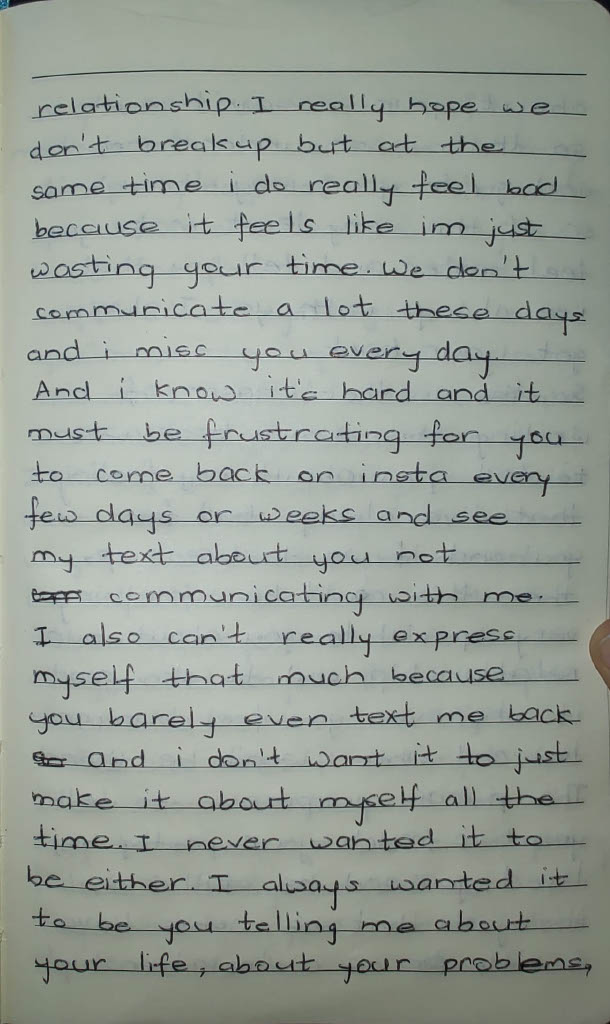 relationship. I really hope we
don't breakup but at the
same time i do really feel bad
because it feels like im just
wasting your time. We don't
communicate a lot these days
and i miss you every day.
And i know it's hard and it
must be frustrating for you
to come back on insta every
few days or weeks and see
my text about you not
communicating with me.
I also can't really express
myself that much because
you barely even text me back
and i don't want it to just
make it about myself all the
time. I never wanted it to
be either. I always wanted it
to be you telling me about
your life, about your problems,